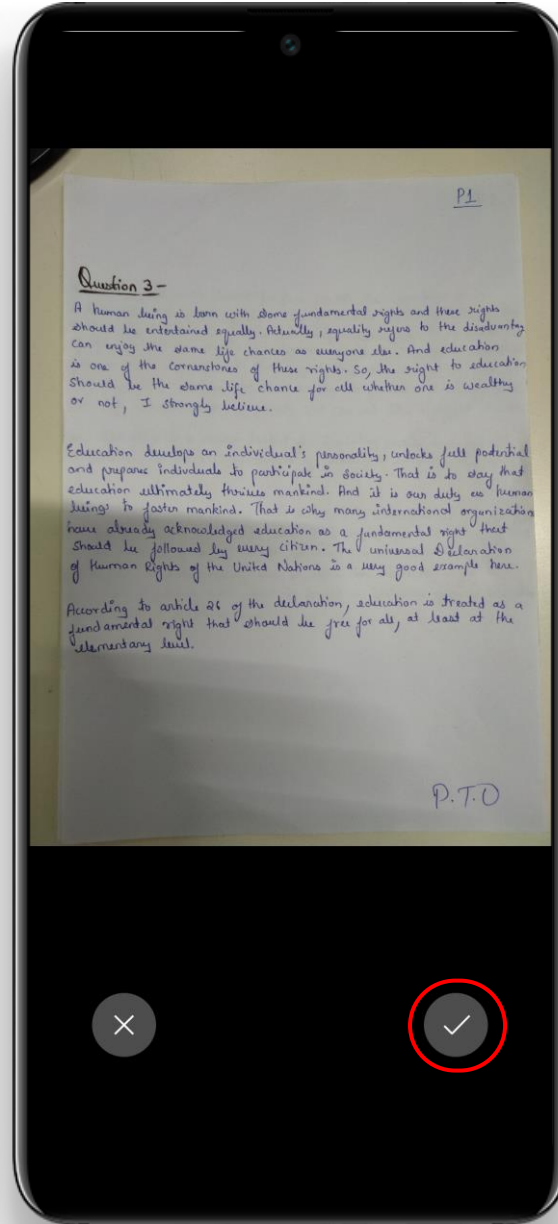 P1
Question 3 -
A human being is born with some fundamental rights and these rights
should be entertained equally. Actually, equality refers to the disadvantag
can enjoy the same life chances as everyone else. And education
is one of the cornerstones of these rights. So, the right to education
should be the same life chance for all whether one is wealthy
or not, I strongly believe.
Education develops an individual's personality, unlocks full potential
and prepares individuals to participate in society. That is to say that
education ultimately thrives mankind. And it is our duty as human
beings to foster mankind. That is why many international organization
have already acknowledged education as a fundamental right that
should be followed by every citizen. The universal Declaration
of Human Rights of the United Nations is a very good example here.
According to article 26 of the declaration, education is treated as a
fundamental right that should be free for all, at least at the
elementary level.
P.T.O